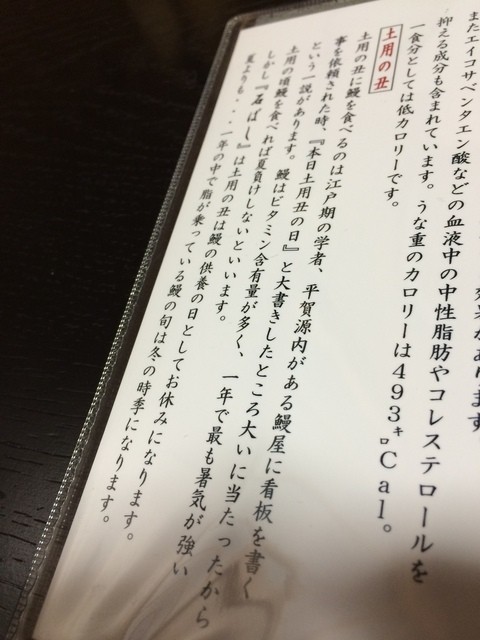 またエイコサペンタエン酸などの血液中の中性脂肪やコレステロールを
抑える成分も含まれています。うな重のカロリーは493㌔Cal。
一食分としては低カロリーです。
土用の丑
土用の丑に鰻を食べるのは江戸期の学者、平賀源内がある鰻屋に看板を書く
事を依頼された時、『本日土用丑の日』と大書きしたところ大いに当たったから
という一説があります。鰻はビタミン含有量が多く、一年で最も暑気が強い
土用の頃鰻を食べれば夏負けしないといいます。
しかし『石ばし』は土用の丑は鰻の供養の日としてお休みになります。
夏よりも・・・一年の中で脂が乗っている鰻の旬は冬の時季になります。